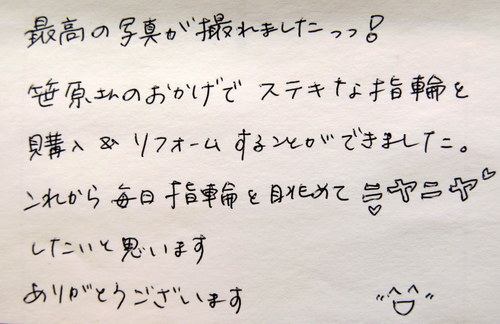 最高の写真が撮れましたっっ!
笹原さんのおかげで ステキな指輪を
購入 & リフォームすることができました。
これから 毎日 指輪を眺めて ニヤニヤ
したいと思います
ありがとうございます